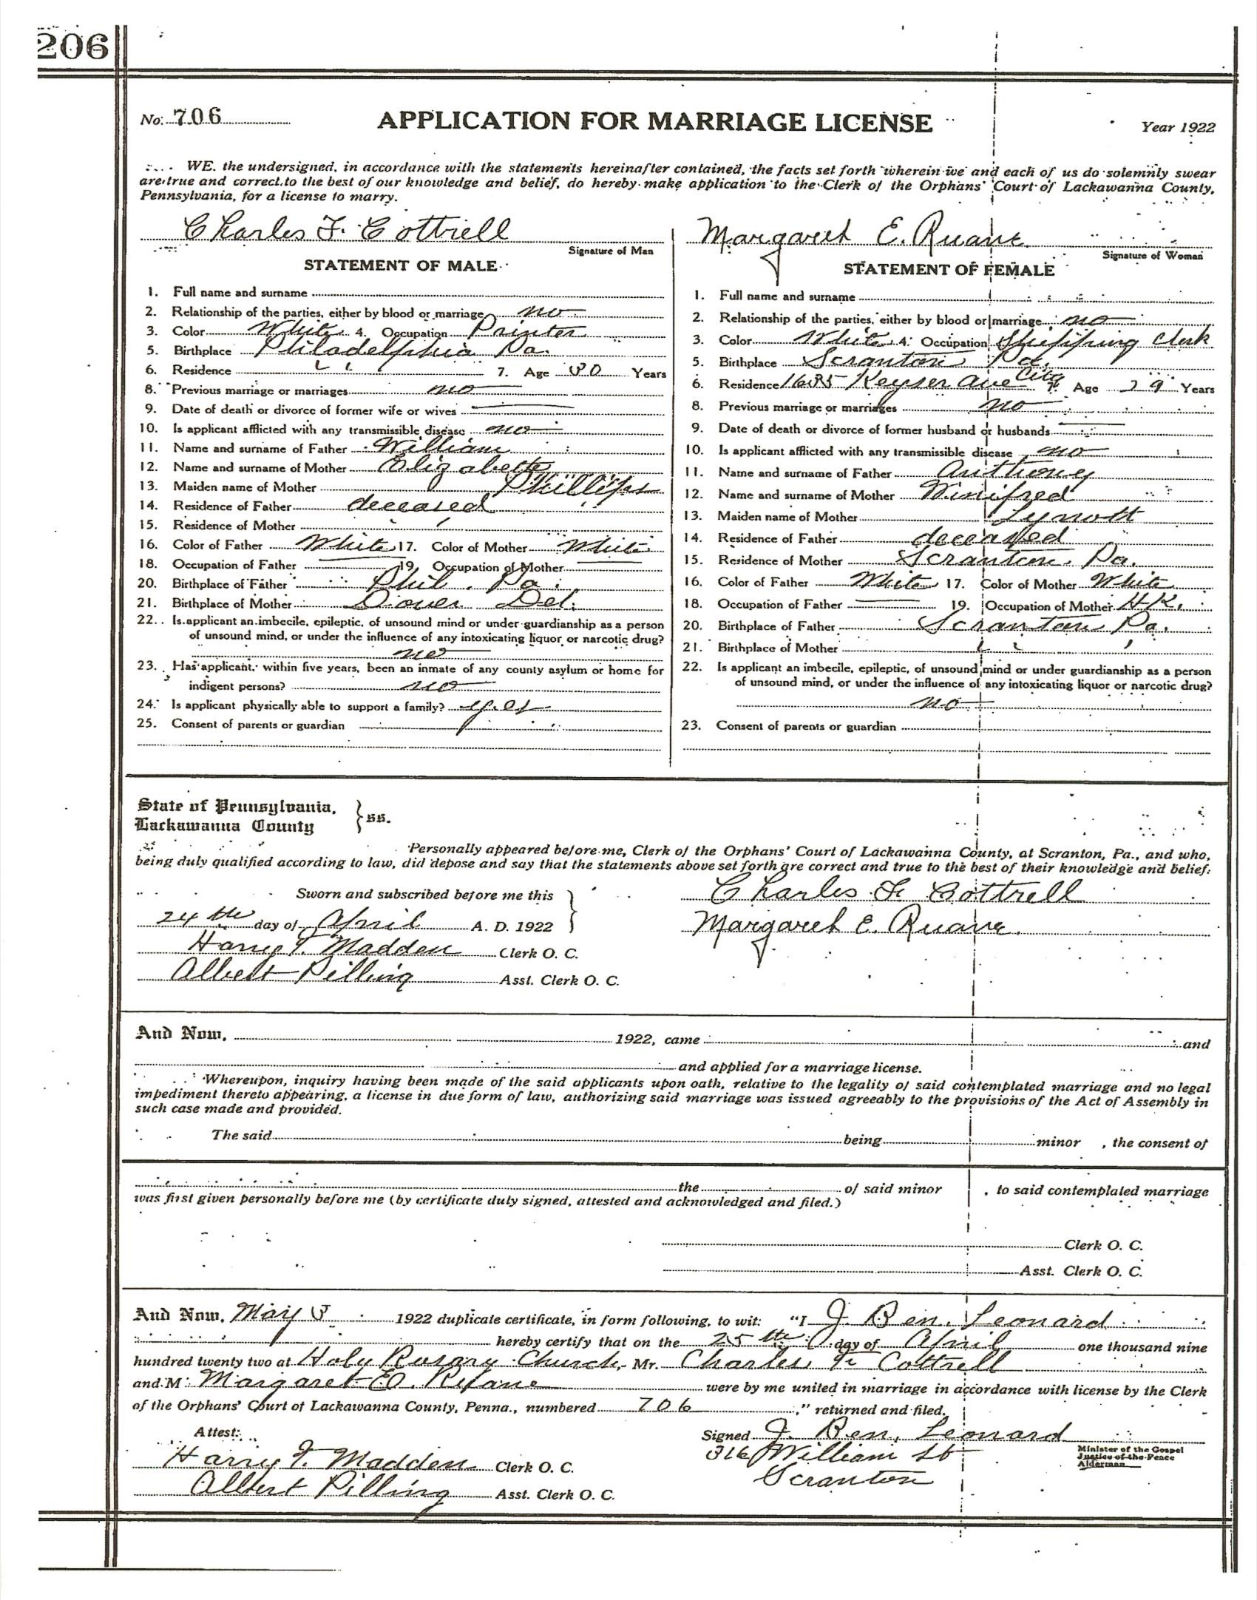 206
No. 706 APPLICATION FOR MARRIAGE LICENSE Year 1922
WE, the undersigned, in accordance with the statements hereinafter contained, the facts set forth wherein we and each of us do solemnly swear
are true and correct to the best of our knowledge and belief, do hereby make application to the Clerk of the Orphans' Court of Lackawanna County,
Pennsylvania, for a license to marry.
Charles F. Cottrell
Signature of Man
STATEMENT OF MALE
1. Full name and surname
2. Relationship of the parties, either by blood or marriage no
3. Color White 4. Occupation Printer
5. Birthplace Philadelphia Pa.
6. Residence " " 7. Age 30 Years
8. Previous marriage or marriages no
9. Date of death or divorce of former wife or wives
10. Is applicant afflicted with any transmissible disease no
11. Name and surname of Father William
12. Name and surname of Mother Elizabeth
13. Maiden name of Mother Phillips
14. Residence of Father deceased
15. Residence of Mother " "
16. Color of Father White 17. Color of Mother White
18. Occupation of Father 19. Occupation of Mother
20. Birthplace of Father Phil. Pa.
21. Birthplace of Mother Dover Del.
22. Is applicant an imbecile, epileptic, of unsound mind or under guardianship as a person
of unsound mind, or under the influence of any intoxicating liquor or narcotic drug?
no
23. Has applicant, within five years, been an inmate of any county asylum or home for
indigent persons? no
24. Is applicant physically able to support a family? yes
25. Consent of parents or guardian
Margaret E. Ruane
Signature of Woman
STATEMENT OF FEMALE
1. Full name and surname
2. Relationship of the parties, either by blood or marriage no
3. Color White 4. Occupation Shipping Clerk
5. Birthplace Scranton Pa.
6. Residence Keyser Ave City 7. Age 29 Years
8. Previous marriage or marriages no
9. Date of death or divorce of former husband or husbands
10. Is applicant afflicted with any transmissible disease no
11. Name and surname of Father Anthony
12. Name and surname of Mother Winifred
13. Maiden name of Mother Lynott
14. Residence of Father deceased
15. Residence of Mother Scranton, Pa.
16. Color of Father White 17. Color of Mother White
18. Occupation of Father 19. Occupation of Mother H.K.
20. Birthplace of Father Scranton Pa.
21. Birthplace of Mother " "
22. Is applicant an imbecile, epileptic, of unsound mind or under guardianship as a person
of unsound mind, or under the influence of any intoxicating liquor or narcotic drug?
no
23. Consent of parents or guardian
State of Pennsylvania,
Lackawanna County } ss.
Personally appeared before me, Clerk of the Orphans' Court of Lackawanna County, at Scranton, Pa., and who,
being duly qualified according to law, did depose and say that the statements above set forth are correct and true to the best of their knowledge and belief:
Sworn and subscribed before me this
24th day of April A. D. 1922
Harry F. Madden Clerk O. C.
Albert Pilling Asst. Clerk O. C.
Charles F. Cottrell
Margaret E. Ruane
And Now, 1922, came and
and applied for a marriage license.
Whereupon, inquiry having been made of the said applicants upon oath, relative to the legality of said contemplated marriage and no legal
impediment thereto appearing, a license in due form of law, authorizing said marriage was issued agreeably to the provisions of the Act of Assembly in
such case made and provided.
The said being minor , the consent of
the of said minor , to said contemplated marriage
was first given personally before me (by certificate duly signed, attested and acknowledged and filed.)
Clerk O. C.
Asst. Clerk O. C.
And Now, May 3 1922 duplicate certificate, in form following, to wit: "I J. Ben. Leonard
hereby certify that on the 25th day of April one thousand nine
hundred twenty two at Holy Rosary Church, Mr. Charles F. Cottrell
and M Margaret E. Ruane were by me united in marriage in accordance with license by the Clerk
of the Orphans' Court of Lackawanna County, Penna., numbered 706 ," returned and filed.
Attest:
Harry F. Madden Clerk O. C.
Albert Pilling Asst. Clerk O. C.
Signed J. Ben. Leonard
316 William St
Scranton
Minister of the Gospel
Justice of the Peace
Alderman